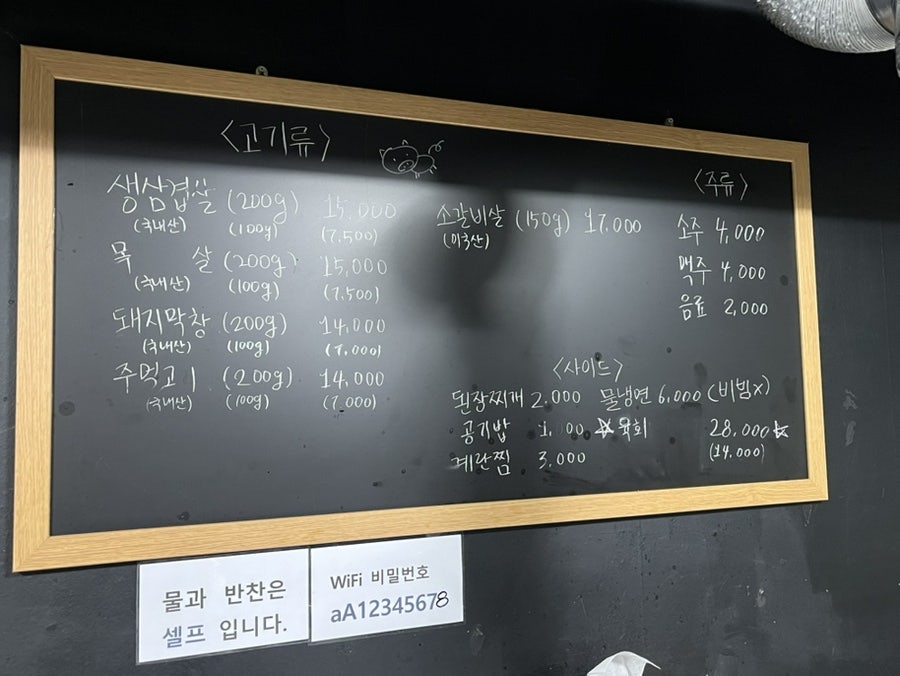 <고기류>
생삼겹살 (200g) 15,000
(국내산) (100g) (7,500)
목 살 (200g) 15,000
(국내산) (100g) (7,500)
돼지막창 (200g) 14,000
(국내산) (100g) (7,000)
주먹고기 (200g) 14,000
(국내산) (100g) (7,000)
소갈비살 (150g) 17,000
(미국산)
<주류>
소주 4,000
맥주 4,000
음료 2,000
<사이드>
된장찌개 2,000 물냉면 6,000 (비빔x)
공기밥 ☆육회 28,000☆
(14,000)
계란찜 3,000
물과 반찬은
셀프 입니다.
WiFi 비밀번호
aA12345678